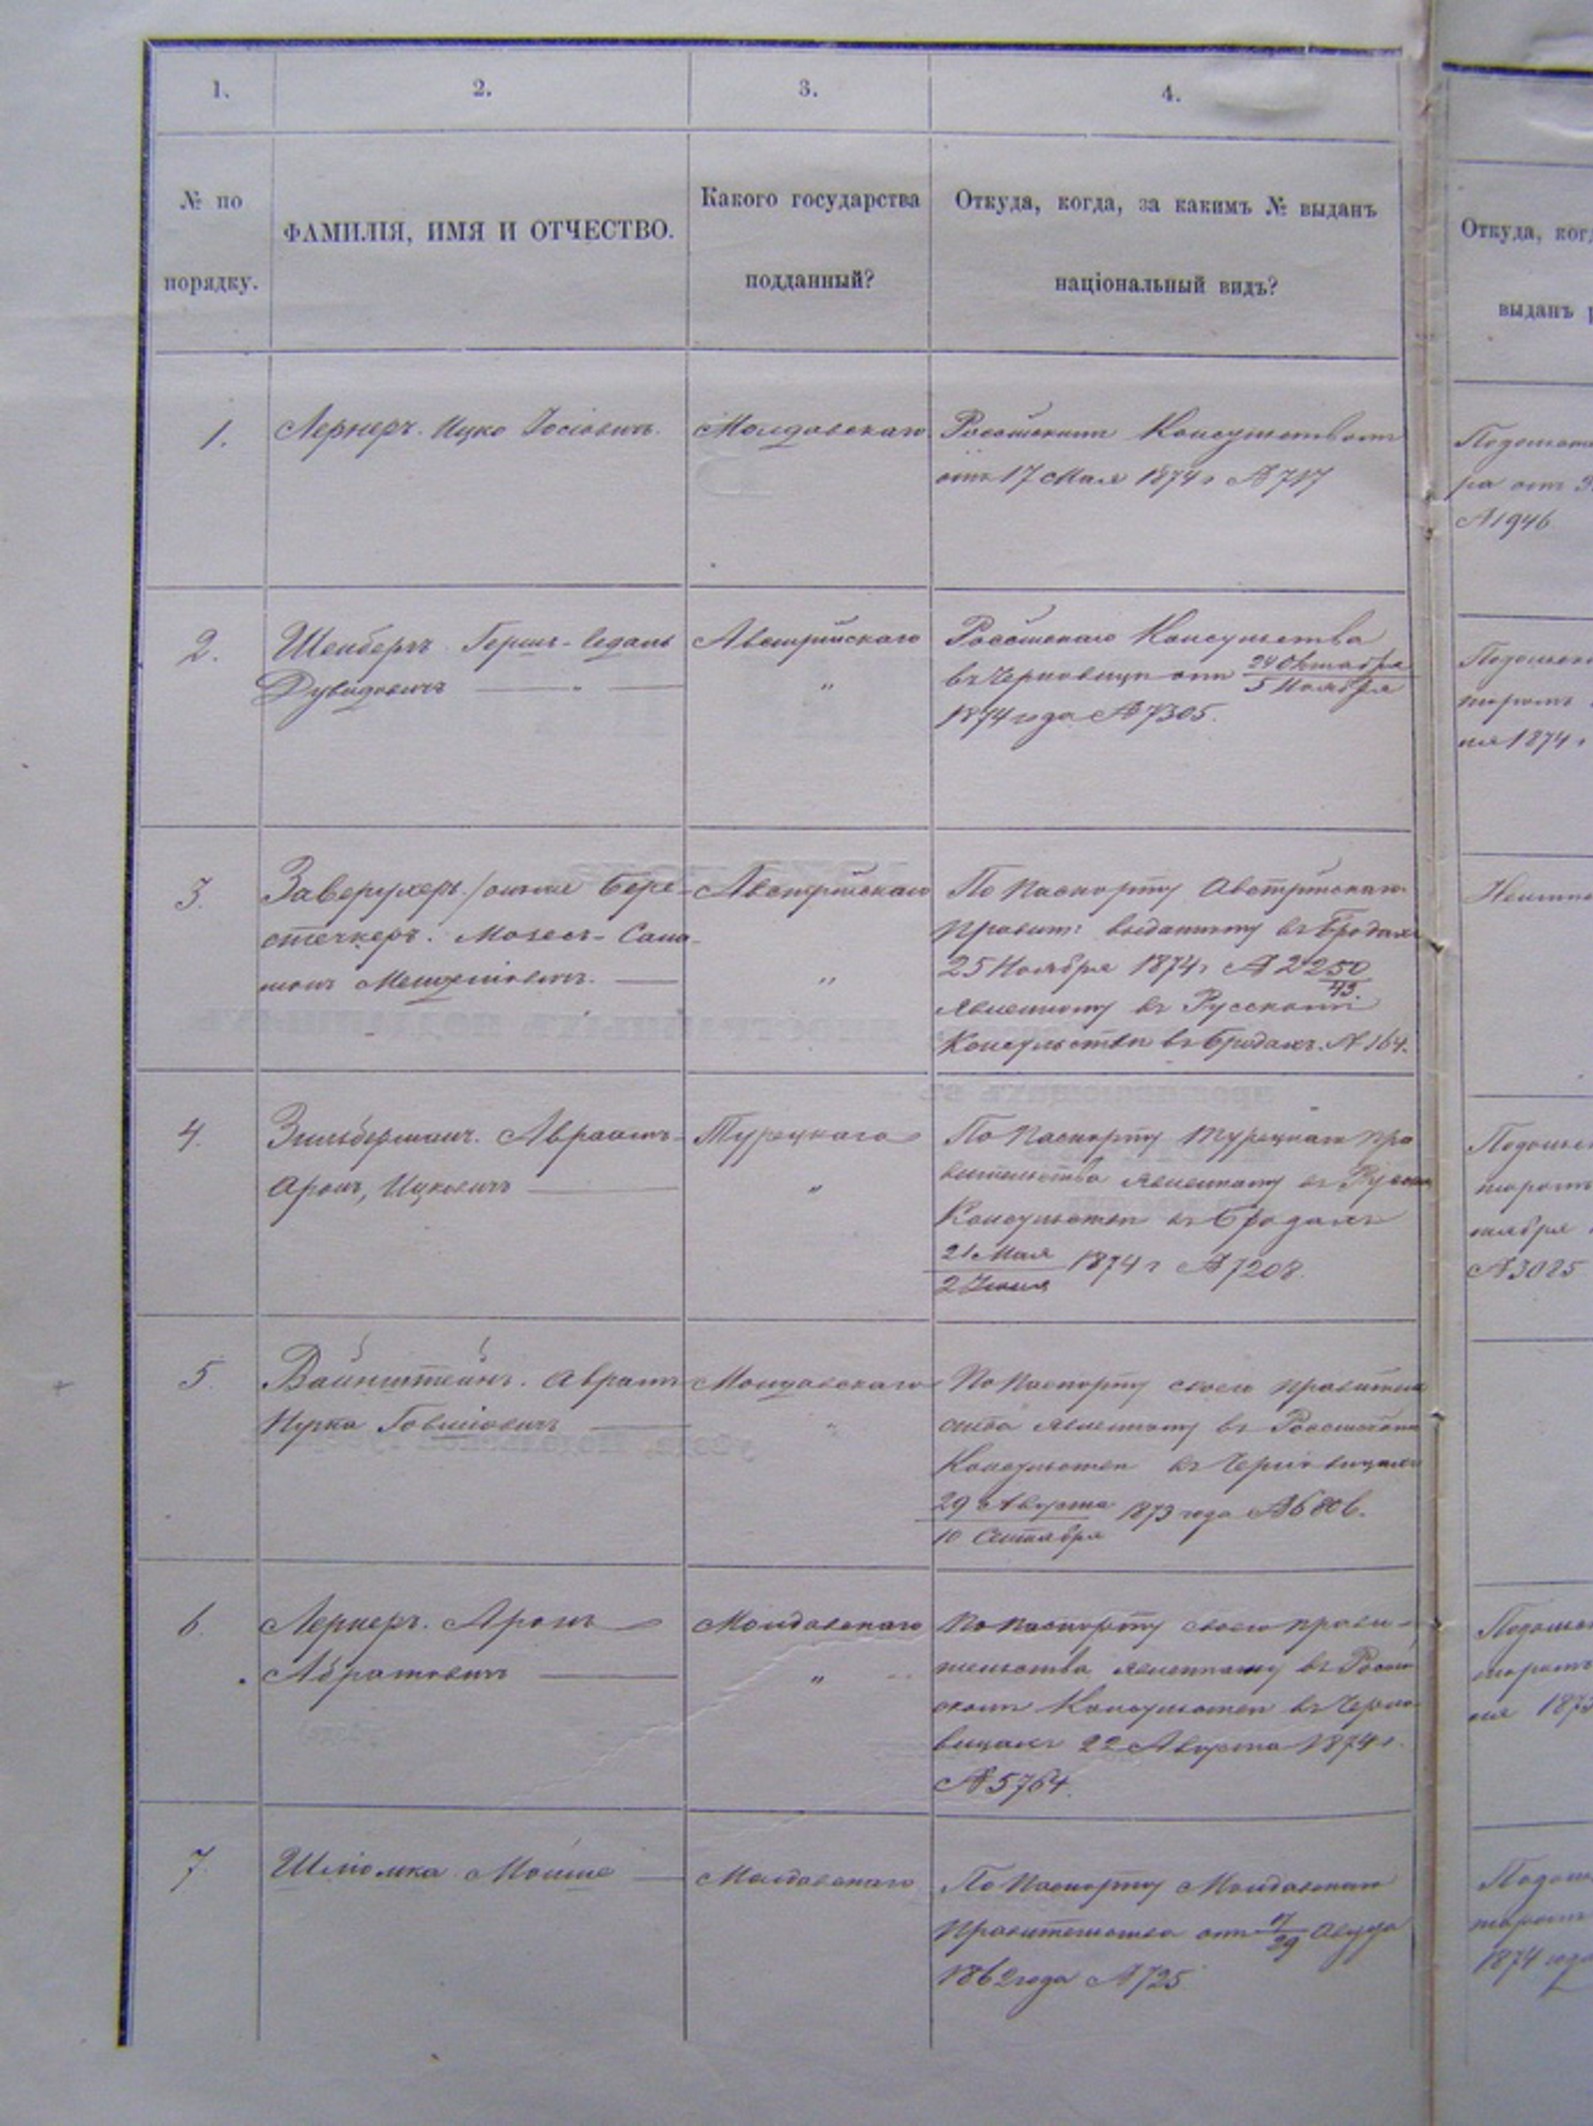 1.
2.
3.
4.
№ по
порядку.
ФАМИЛІЯ, ИМЯ И ОТЧЕСТВО.
Какого государства
подданный?
Откуда, когда, за какимъ № выданъ
національный видъ?
Откуда, ког
выданъ
1.
Лернеръ. Ицко Іосіовичъ.
Молдавскаго
Россійскимъ Консульствомъ
отъ 17 Мая 1874 г № 717
№ 1946
2.
Шенбергъ Гершъ-
Дувидовичъ — „ —
Австрійскаго
„
Россійскаго Консульства
въ Черновицы отъ 24 Октября
5 Ноября
1874 года № 7305.
1874 г
3.
Заверухеръ /онъ же Бере-
стечкеръ. Мозесъ-Сало-
монъ
Австрійскаго
„
По Паспорту Австрійскаго
Правит: выданному въ Бродахъ
25 Ноября 1874 г № 2250
43.
явленному въ Русскомъ
Консульствѣ въ Бродахъ. № 164.
4.
Зильберманъ. Авраамъ-
Аронъ, Ицковичъ —
Турецкаго
„
По Паспорту Турецкаго Пра
вительства явленному въ Русском
Консульствѣ въ Бродахъ
21 Мая
2 Іюня
1874 г № 7208.
№ 3085
5.
Вайнштейнъ. Аврамъ
Ицка —
Молдавскаго
„
По Паспорту своего Правитель
ства явленному въ Россійском
Консульствѣ въ Черновицахъ
29 Августа
10 Сентября
1873 года № 6806.
6.
Лернеръ. Аронъ —
Абрамовичъ —
Молдавскаго
„
По Паспорту своего прави-
тельства явленному въ Россій
скомъ Консульствѣ въ Черно
вицахъ 22 Августа 1874 г.
№ 5764.
7.
Шліомка Мойше —
Молдавскаго
По Паспорту Молдавскаго
Правительства отъ 17
29
1862 года № 725
1874 года